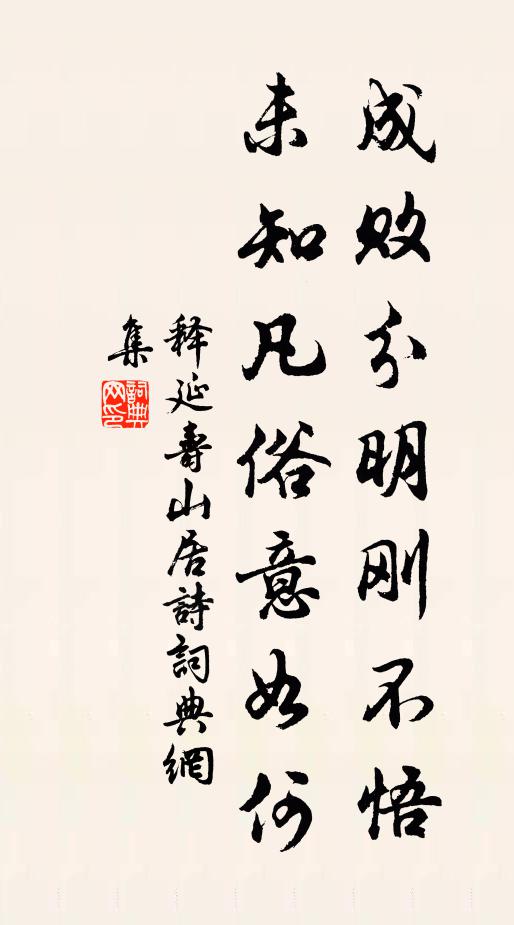 成败分明刚不悟
未知凡俗意如何
释延壽山居詩詞典網
集
詞典
网印